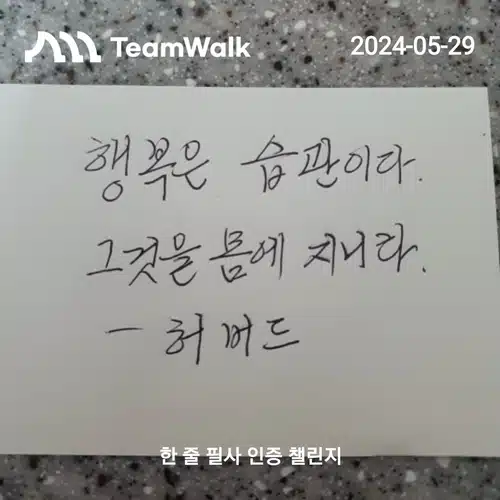 TeamWalk
2024-05-29
행복은 습관이다.
그것을 몸에 지니라.
- 허버드
한 줄 필사 인증 챌린지